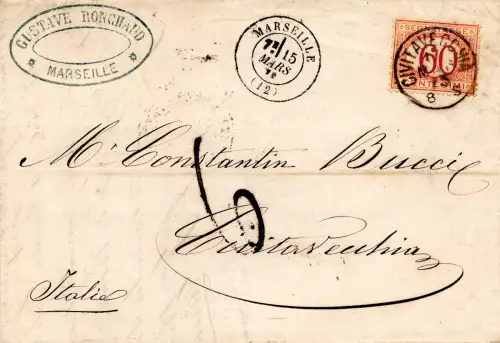 GUSTAVE RONCHAUD
MARSEILLE
MARSEILLE
15
MARS
(12)
SEGNATASSE
60
CENTESIMI
CIVITAVECCHIA
8
6
Mr. Constantin Bucci
Civitavecchia
Italie